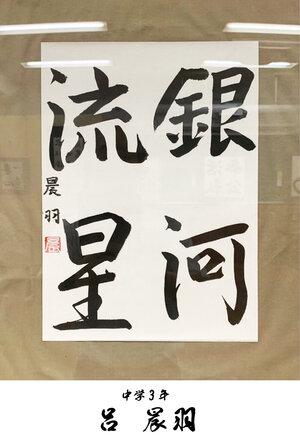 銀河
流星
晨羽
中学3年
呂晨羽